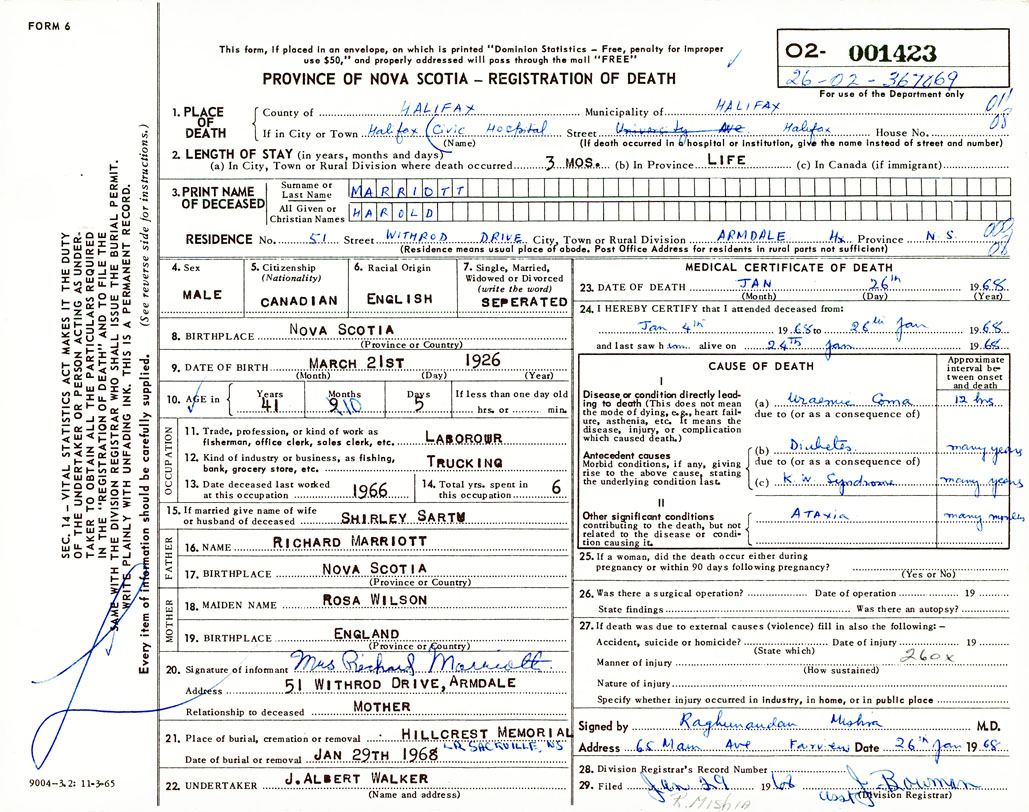 FORM 6
This form, if placed in an envelope, on which is printed "Dominion Statistics – Free, penalty for improper
use $50," and properly addressed will pass through the mail "FREE"
PROVINCE OF NOVA SCOTIA – REGISTRATION OF DEATH
O2- 001423
26-02-367069
For use of the Department only
011
08
1. PLACE OF DEATH
County of HALIFAX Municipality of HALIFAX
If in City or Town Halifax (Civic Hospital Street University Ave Halifax House No.
(Name) (If death occurred in a hospital or institution, give the name instead of street and number)
2. LENGTH OF STAY (in years, months and days)
(a) In City, Town or Rural Division where death occurred 3 MOS. (b) In Province LIFE (c) In Canada (if immigrant)
3. PRINT NAME OF DECEASED
Surname or Last Name MARRIOTT
All Given or Christian Names HAROLD
RESIDENCE No. 51 Street WITHROD DRIVE City, Town or Rural Division ARMDALE Hx Province N.S.
(Residence means usual place of abode. Post Office Address for residents in rural parts not sufficient)
009
08
SEC. 14 – VITAL STATISTICS ACT MAKES IT THE DUTY
OF THE UNDERTAKER OR PERSON ACTING AS UNDER-
TAKER TO OBTAIN ALL THE PARTICULARS REQUIRED
IN THE "REGISTRATION OF DEATH" AND TO FILE THE
SAME WITH THE DIVISION REGISTRAR WHO SHALL ISSUE THE BURIAL PERMIT.
WRITE PLAINLY WITH UNFADING INK. THIS IS A PERMANENT RECORD.
Every item of information should be carefully supplied. (See reverse side for instructions.)
4. Sex
MALE
5. Citizenship
(Nationality)
CANADIAN
6. Racial Origin
ENGLISH
7. Single, Married,
Widowed or Divorced
(write the word)
SEPERATED
8. BIRTHPLACE NOVA SCOTIA
(Province or Country)
9. DATE OF BIRTH MARCH 21ST 1926
(Month) (Day) (Year)
10. AGE in Years 41 Months 9 10 Days 5 If less than one day old
hrs. or min.
OCCUPATION
11. Trade, profession, or kind of work as
fisherman, office clerk, sales clerk, etc. LABOROUR
12. Kind of industry or business, as fishing,
bank, grocery store, etc. TRUCKING
13. Date deceased last worked
at this occupation 1966
14. Total yrs. spent in
this occupation 6
15. If married give name of wife
or husband of deceased SHIRLEY SARTW
FATHER
16. NAME RICHARD MARRIOTT
17. BIRTHPLACE NOVA SCOTIA
(Province or Country)
MOTHER
18. MAIDEN NAME ROSA WILSON
19. BIRTHPLACE ENGLAND
(Province or Country)
20. Signature of informant Mrs Richard Marriott.
Address 51 WITHROD DRIVE, ARMDALE
Relationship to deceased MOTHER
21. Place of burial, cremation or removal HILLCREST MEMORIAL
LR SACKVILLE, NS
Date of burial or removal JAN 29TH 1968
22. UNDERTAKER J. ALBERT WALKER
(Name and address)
9004–3.2: 11-3-65
MEDICAL CERTIFICATE OF DEATH
23. DATE OF DEATH JAN 26th 1968
(Month) (Day) (Year)
24. I HEREBY CERTIFY that I attended deceased from:
Jan 4th 1968 to 26th Jan 1968
and last saw him alive on 24th Jan 1968
CAUSE OF DEATH
Approximate
interval be-
tween onset
and death
I
Disease or condition directly lead-
ing to death (This does not mean
the mode of dying, e.g., heart fail-
ure, asthenia, etc. It means the
disease, injury, or complication
which caused death.)
(a) Uraemic Coma 12 hrs
due to (or as a consequence of)
Antecedent causes
Morbid conditions, if any, giving
rise to the above cause, stating
the underlying condition last.
(b) Diabetes many years
due to (or as a consequence of)
(c) K.W Syndrome many years
II
Other significant conditions
contributing to the death, but not
related to the disease or condi-
tion causing it.
ATAXIA many months
25. If a woman, did the death occur either during
pregnancy or within 90 days following pregnancy?
(Yes or No)
26. Was there a surgical operation? Date of operation 19
State findings Was there an autopsy?
27. If death was due to external causes (violence) fill in also the following: –
Accident, suicide or homicide? Date of injury 19
(State which) 260X
Manner of injury
(How sustained)
Nature of injury
Specify whether injury occurred in industry, in home, or in public place
Signed by Raghunandan Mishra M.D.
Address 65 Main Ave Fairview Date 26th Jan 1968
28. Division Registrar's Record Number
29. Filed Jan 29 1968 J. Bowman
asst (Division Registrar)
R. Mishra